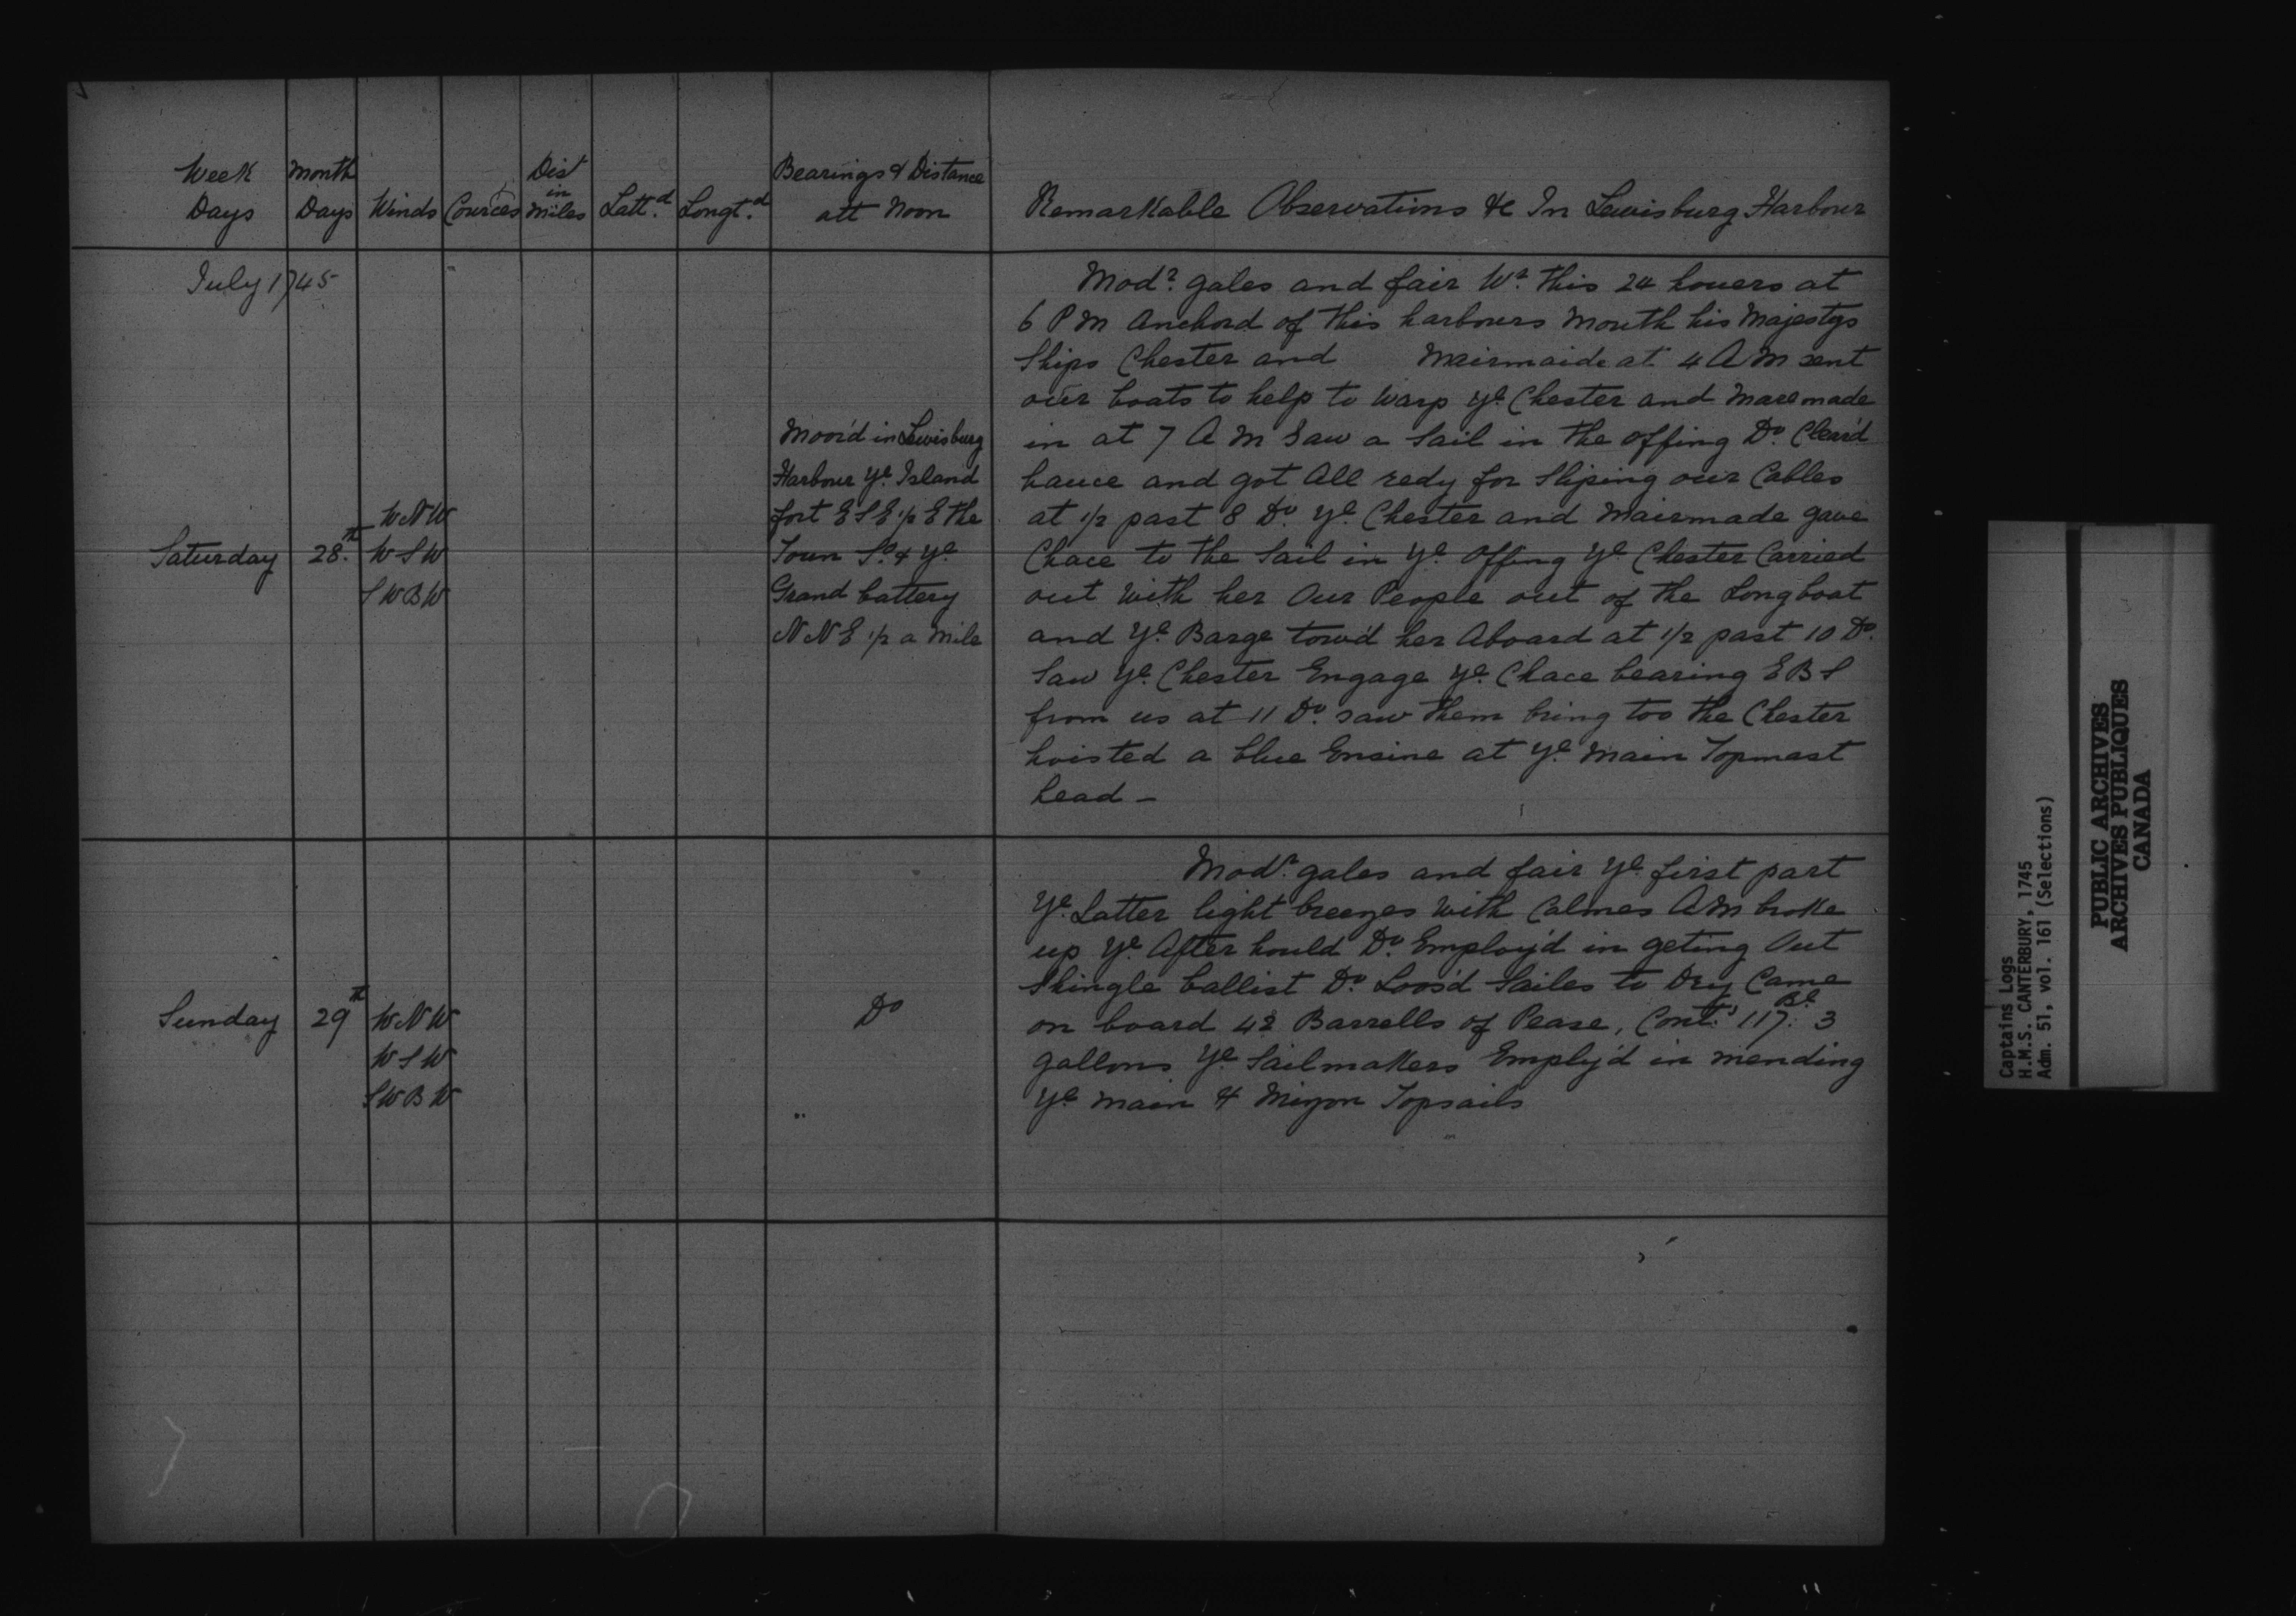 Week Days
Month Days
Winds
Cources
Dist in Miles
Latt.d
Longt.d
Bearings & Distance att Noon
Remarkable Observations &c In Lewisburg Harbour
July 1745
Saturday
28.th
W N W
W S W
S W B W
Moor'd in Lewisburg
Harbour ye. Island
fort E S E 1/2 E the
Toun So. & ye.
Grand battery
N N E 1/2 a Mile
Modr. gales and fair Wr. this 24 houers at
6 P M Anchord of this harbours Mouth his Majestys
Ships Chester and Mairmaide at 4 A M sent
our boats to help to Warp ye. Chester and Maremade
in at 7 A M Saw a Sail in the offing Do. Clear'd
hauce and got All redy for Sliping our Cables
at 1/2 past 8 Do. ye. Chester and Mairmade gave
Chace to the Sail in ye. Offing ye. Chester Carried
out With her Our People out of the Longboat
and ye. Barge tow'd her Aboard at 1/2 past 10 Do.
Saw ye. Chester Engage ye. Chace bearing E B S
from us at 11 Do. saw them bring too the Chester
hoisted a blue Ensine at ye. Main Topmast
head –
Sunday
29th
W N W
W S W
S W B W
Do
Modr. gales and fair ye. first part
ye. Latter light breezes With Calmes A M broke
up ye. After hould Do. Employ'd in geting Out
Shingle ballist Do. Loos'd Sailes to Dry Came
on board 42 Barrells of Pease, Cont.s 117. Be. 3
gallons ye. Sailmakers Employ'd in mending
ye. Main & Mizon Topsails
Captains Logs
H.M.S. CANTERBURY, 1745
Adm. 51, vol. 161 (Selections)
PUBLIC ARCHIVES
ARCHIVES PUBLIQUES
CANADA